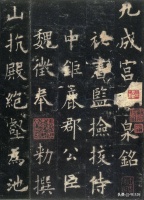 九成宮泉銘
祕書監撿挍侍
中鉅鹿郡公臣
魏徵奉勅撰
山抗殿絕壑為池